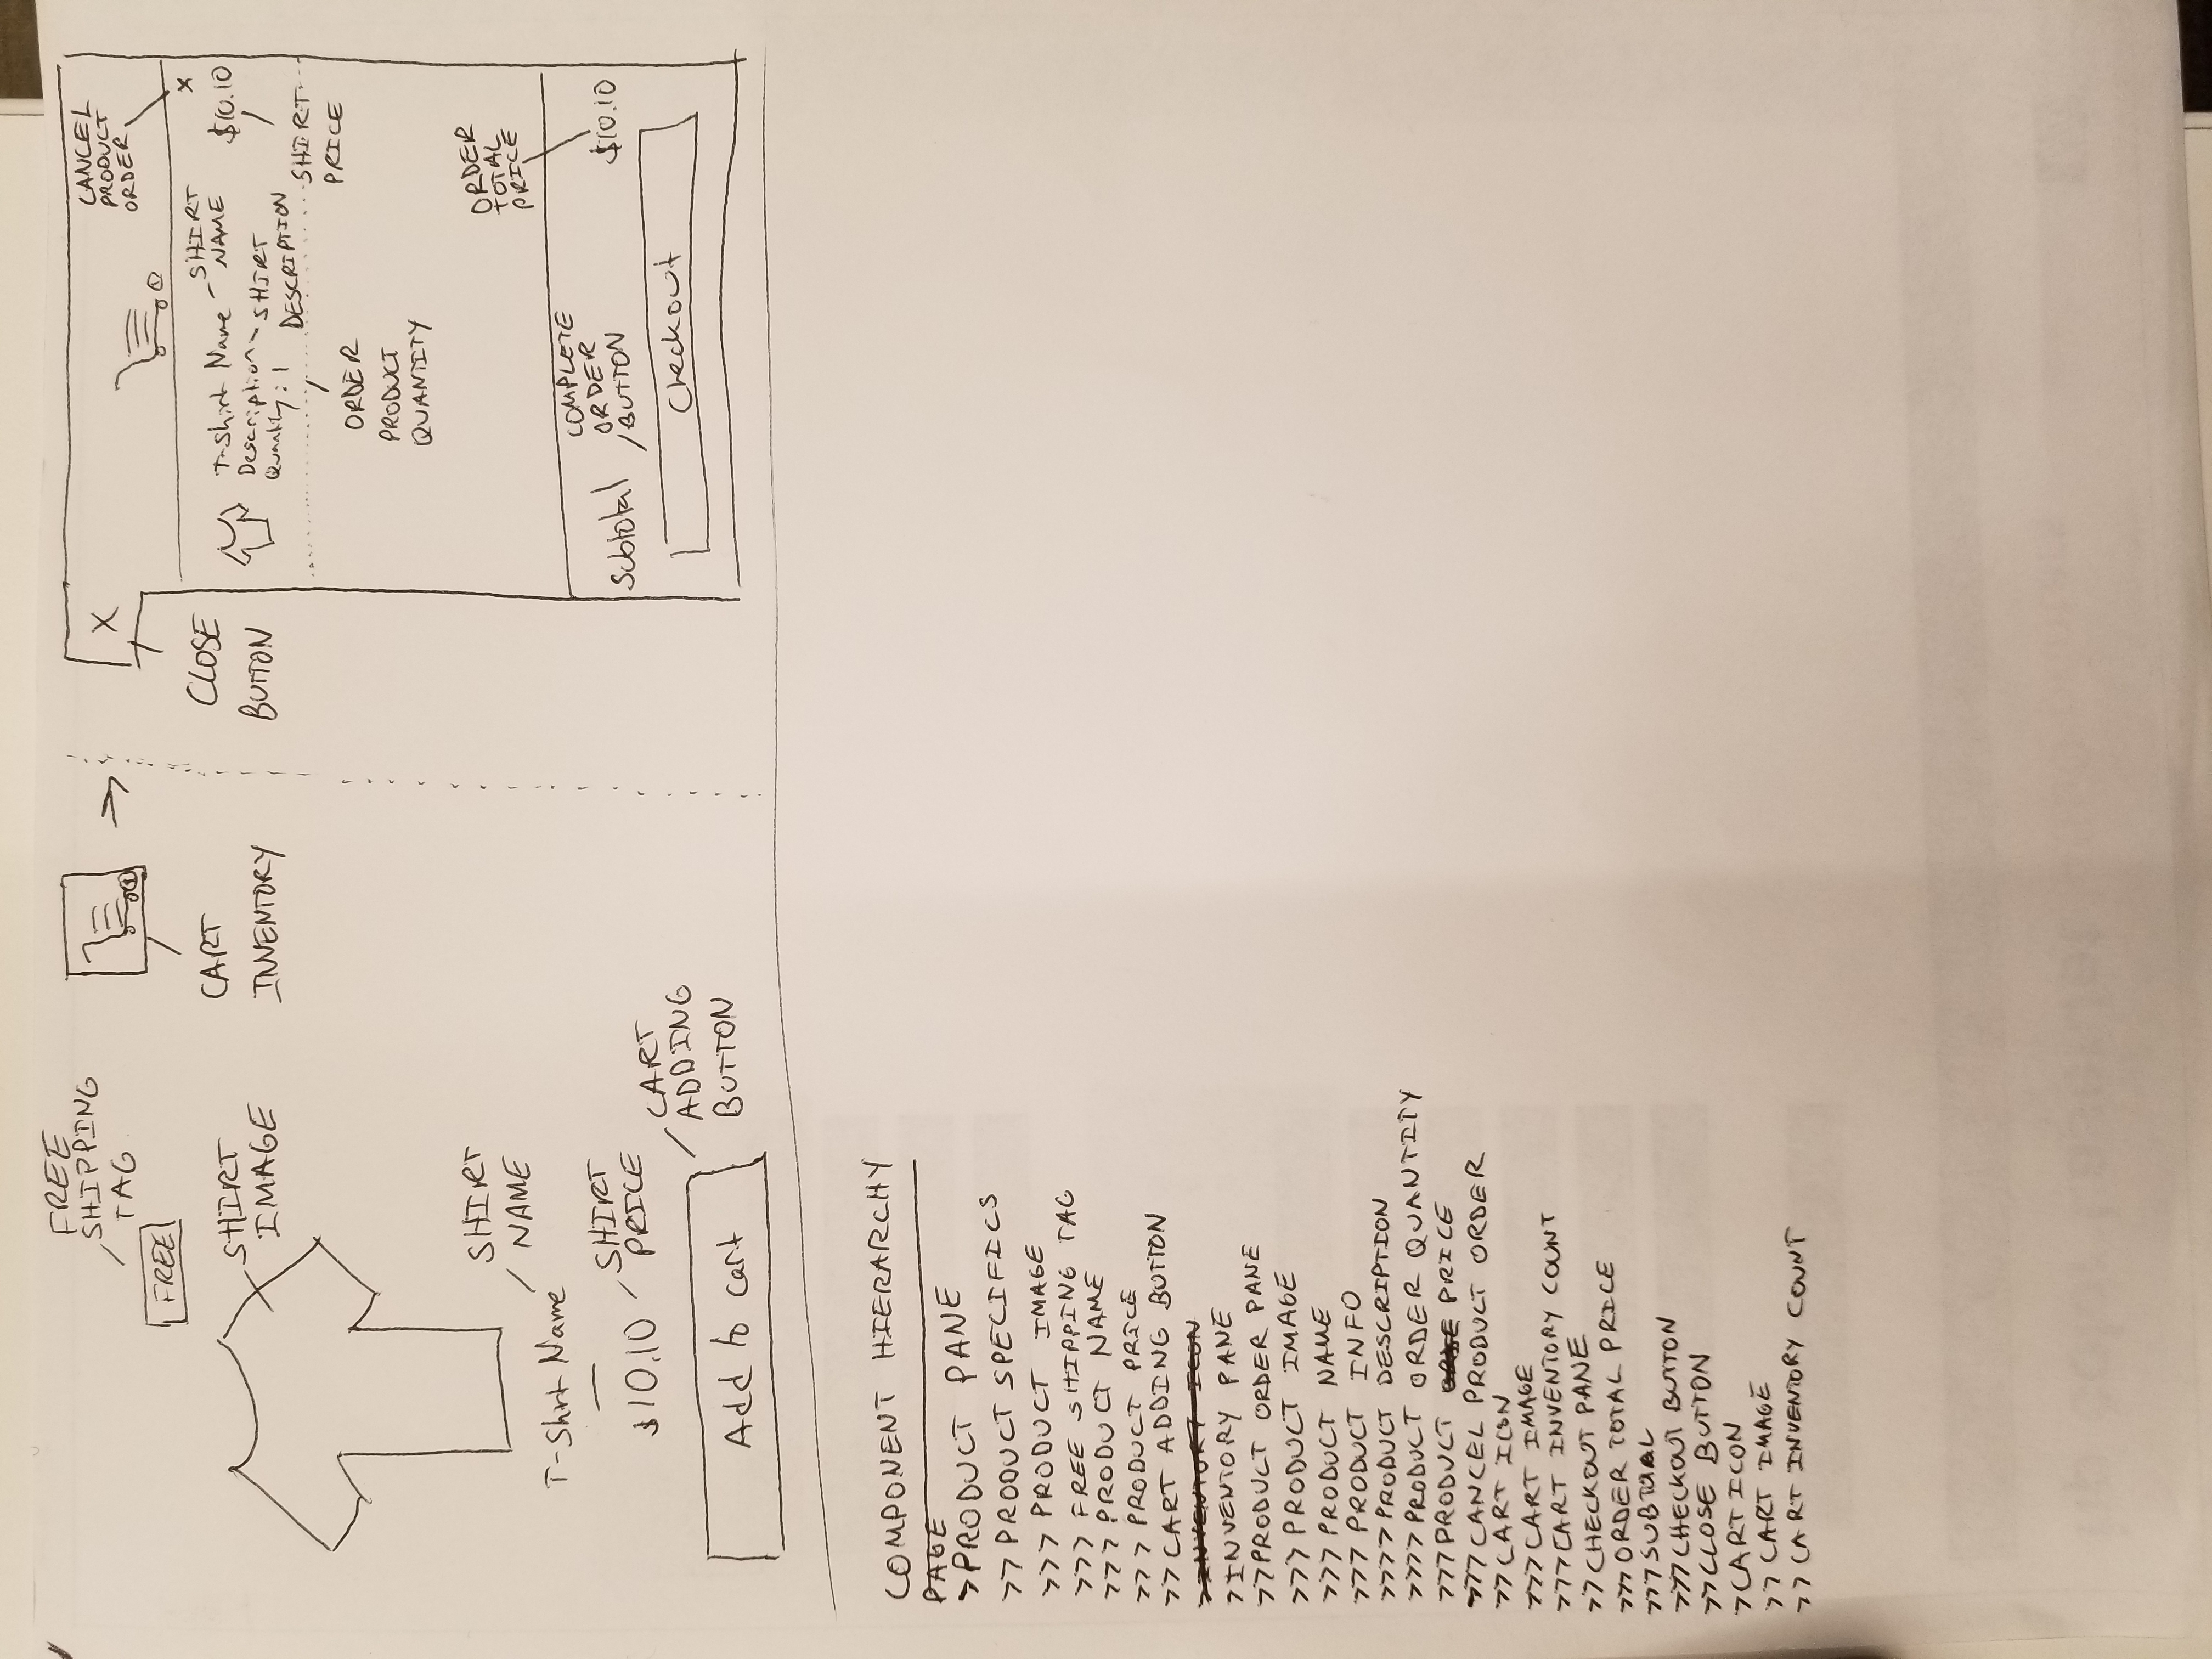 FREE
SHIPPING
TAG
FREE
SHIRT
IMAGE
CART
INVENTORY
SHIRT
NAME
T-Shirt Name
$10.10
SHIRT
PRICE
Add to cart
CART
ADDING
BUTTON
X
CLOSE
BUTTON
CANCEL
PRODUCT
ORDER
1
1
x
T-Shirt Name
SHIRT
NAME
$10.10
Description
SHIRT
DESCRIPTION
Quantity: 1
SHIRT
PRICE
ORDER
PRODUCT
QUANTITY
ORDER
TOTAL
PRICE
COMPLETE
ORDER
BUTTON
Subtotal
$10.10
Checkout
COMPONENT HIERARCHY
PAGE
>PRODUCT PANE
>> PRODUCT SPECIFICS
>>> PRODUCT IMAGE
>>> FREE SHIPPING TAG
>>> PRODUCT NAME
>>> PRODUCT PRICE
>> CART ADDING BUTTON
>INVENTORY ICON
>INVENTORY PANE
>>PRODUCT ORDER PANE
>>> PRODUCT IMAGE
>>> PRODUCT NAME
>>> PRODUCT INFO
>>>> PRODUCT DESCRIPTION
>>>> PRODUCT ORDER QUANTITY
>>>PRODUCT PRICE
>>>CANCEL PRODUCT ORDER
>>CART ICON
>>>CART IMAGE
>>>CART INVENTORY COUNT
>>CHECKOUT PANE
>>>ORDER TOTAL PRICE
>>>SUBTOTAL
>>>CHECKOUT BUTTON
>>CLOSE BUTTON
>CART ICON
>> CART IMAGE
>> CART INVENTORY COUNT